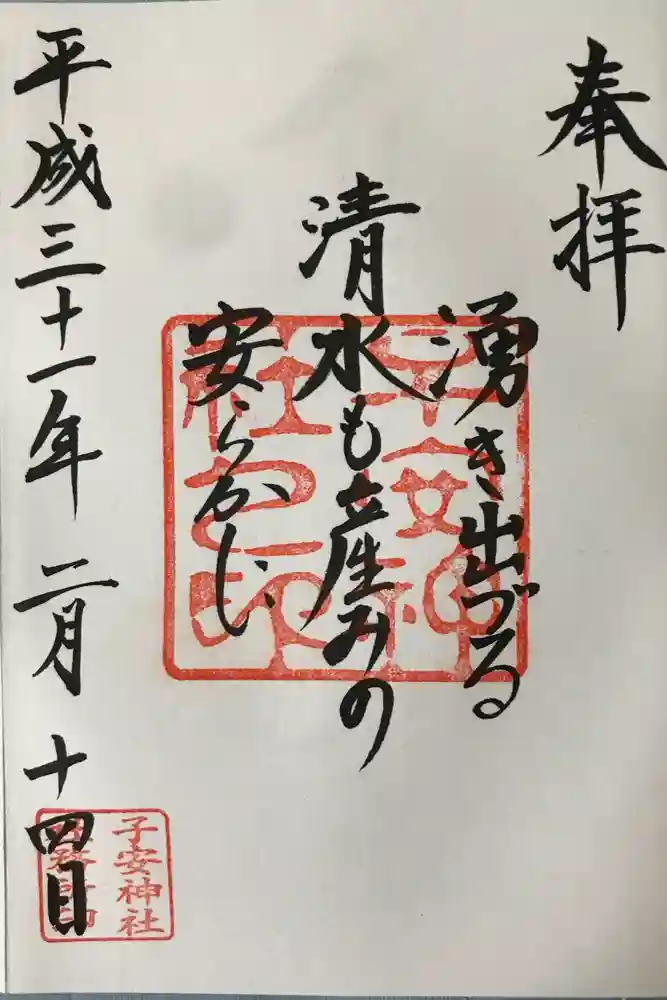 奉拝
湧き出づる
清水も産みの
安らかに
子安神
社之印
平成三十一年 二月 十四日
子安神社
社務所印